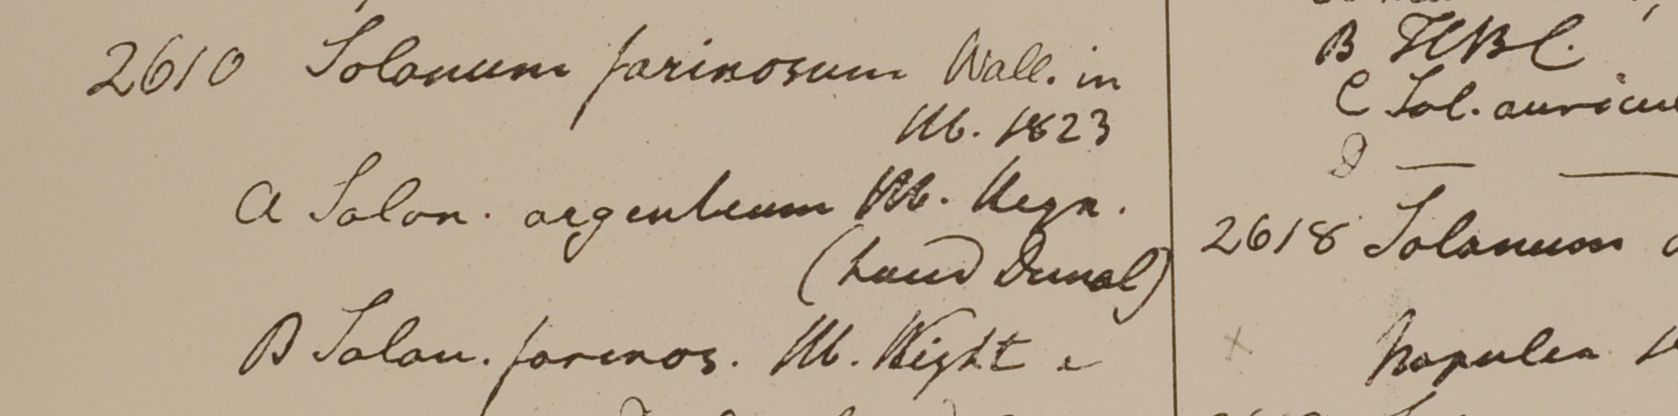 2610 Solanum farinosum Wall. in
Hb. 1823
A Solan. argenteum Hb. Heyn.
(haud Dunal)
B Solan. farinos. Hb. Wight
B HBC.
C Sol. auricu
D —
2618 Solanum
Napulea